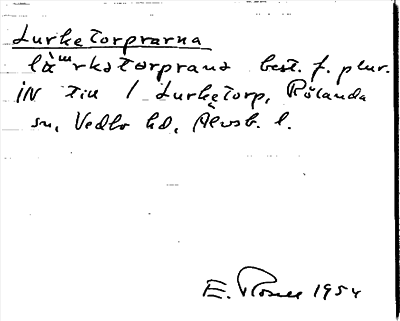 Lurketorparna
best. f. plur.
IN till / Lurketorp, Rölanda
sn, Vedbo hd, Älvsb. l.
E. Rosell 1954